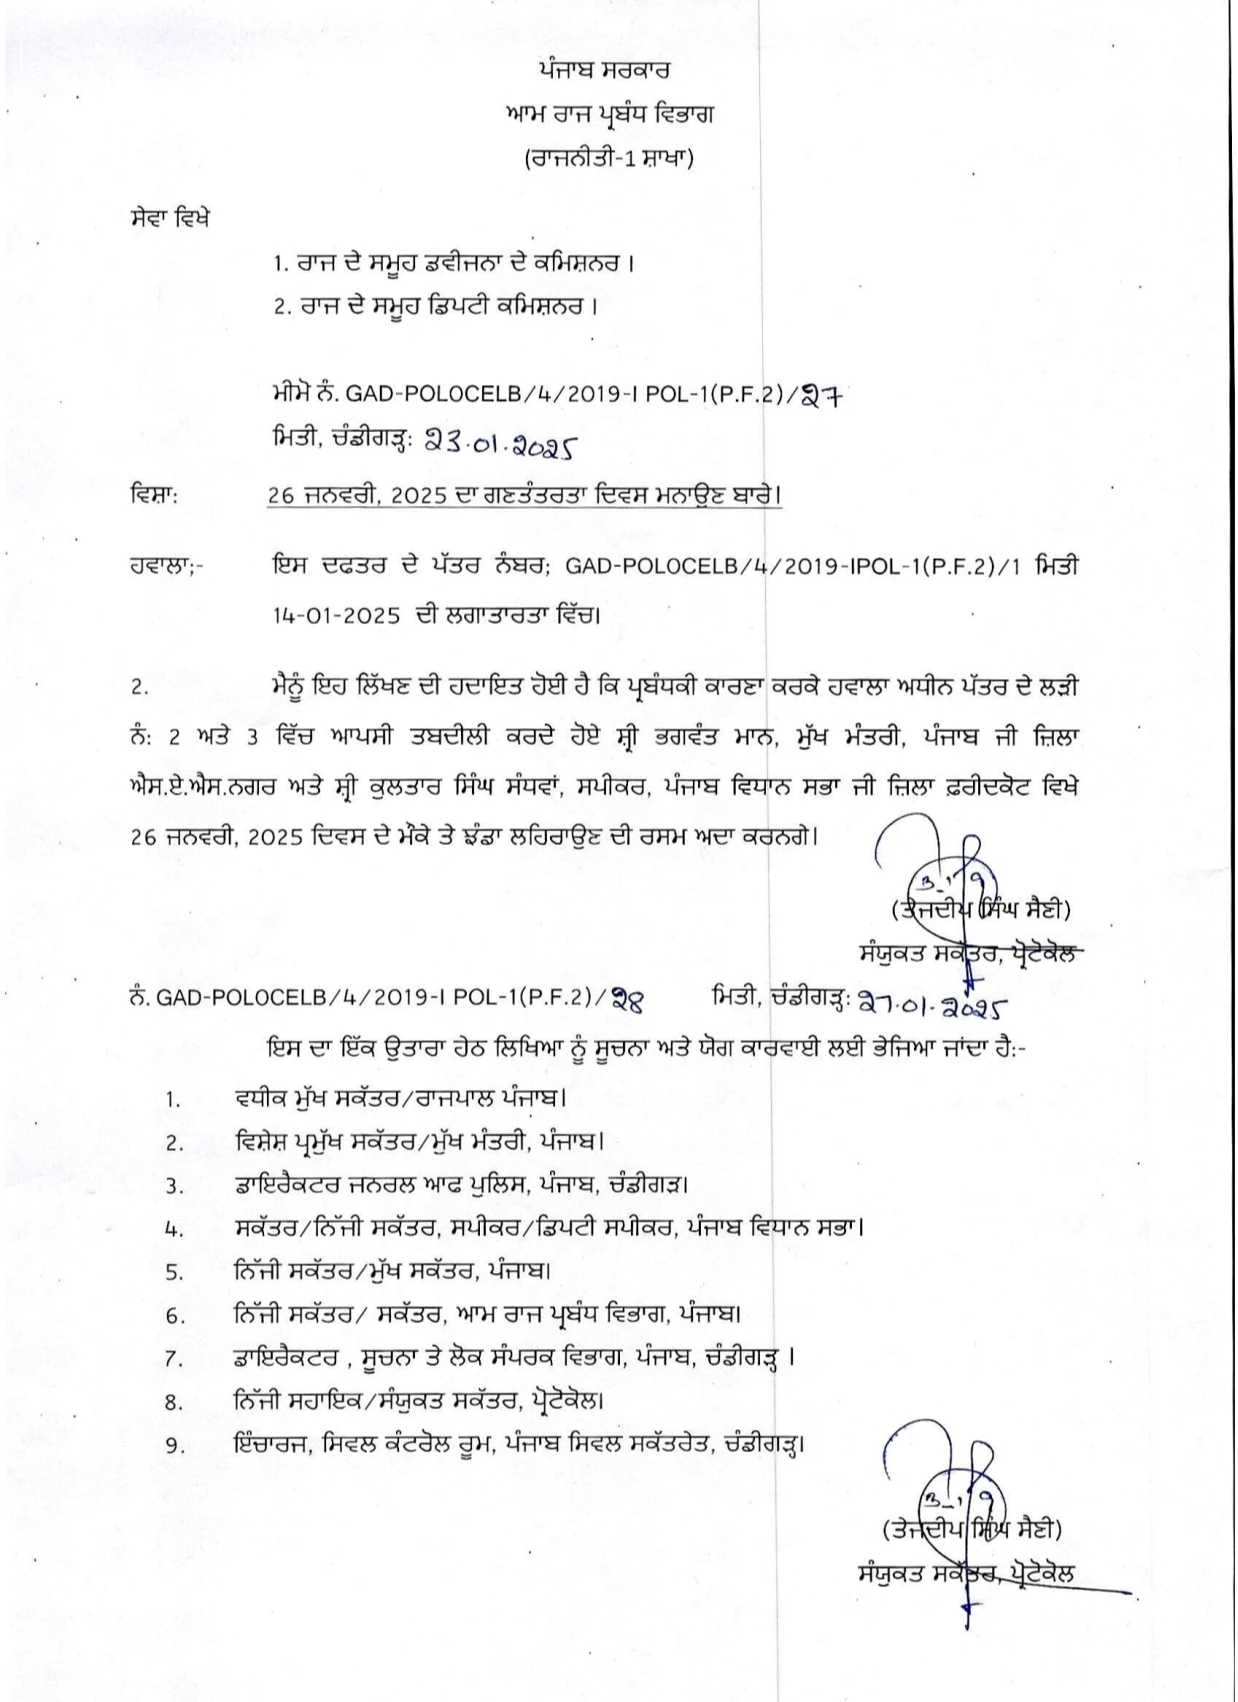 ਪੰਜਾਬ ਸਰਕਾਰ
ਆਮ ਰਾਜ ਪ੍ਰਬੰਧ ਵਿਭਾਗ
(ਰਾਜਨੀਤੀ-1 ਸ਼ਾਖਾ)
ਸੇਵਾ ਵਿਖੇ
1. ਰਾਜ ਦੇ ਸਮੂਹ ਡਵੀਜਨਾ ਦੇ ਕਮਿਸ਼ਨਰ ।
2. ਰਾਜ ਦੇ ਸਮੂਹ ਡਿਪਟੀ ਕਮਿਸ਼ਨਰ ।
ਮੀਮੋ ਨੰ. GAD-POLOCELB/4/2019-I POL-1(P.F.2)/27
ਮਿਤੀ, ਚੰਡੀਗੜ੍ਹ: 23.01.2025
ਵਿਸ਼ਾ: 26 ਜਨਵਰੀ, 2025 ਦਾ ਗਣਤੰਤਰਤਾ ਦਿਵਸ ਮਨਾਉਣ ਬਾਰੇ।
ਹਵਾਲਾ;- ਇਸ ਦਫਤਰ ਦੇ ਪੱਤਰ ਨੰਬਰ; GAD-POLOCELB/4/2019-IPOL-1(P.F.2)/1 ਮਿਤੀ
14-01-2025 ਦੀ ਲਗਾਤਾਰਤਾ ਵਿੱਚ।
2. ਮੈਨੂੰ ਇਹ ਲਿੱਖਣ ਦੀ ਹਦਾਇਤ ਹੋਈ ਹੈ ਕਿ ਪ੍ਰਬੰਧਕੀ ਕਾਰਣਾ ਕਰਕੇ ਹਵਾਲਾ ਅਧੀਨ ਪੱਤਰ ਦੇ ਲੜੀ
ਨੰ: 2 ਅਤੇ 3 ਵਿੱਚ ਆਪਸੀ ਤਬਦੀਲੀ ਕਰਦੇ ਹੋਏ ਸ਼੍ਰੀ ਭਗਵੰਤ ਮਾਨ, ਮੁੱਖ ਮੰਤਰੀ, ਪੰਜਾਬ ਜੀ ਜ਼ਿਲਾ
ਐਸ.ਏ.ਐਸ.ਨਗਰ ਅਤੇ ਸ਼੍ਰੀ ਕੁਲਤਾਰ ਸਿੰਘ ਸੰਧਵਾਂ, ਸਪੀਕਰ, ਪੰਜਾਬ ਵਿਧਾਨ ਸਭਾ ਜੀ ਜ਼ਿਲਾ ਫ਼ਰੀਦਕੋਟ ਵਿਖੇ
26 ਜਨਵਰੀ, 2025 ਦਿਵਸ ਦੇ ਮੌਕੇ ਤੇ ਝੰਡਾ ਲਹਿਰਾਉਣ ਦੀ ਰਸਮ ਅਦਾ ਕਰਨਗੇ।
(ਤੇਜਦੀਪ ਸਿੰਘ ਸੈਣੀ)
ਸੰਯੁਕਤ ਸਕੱਤਰ, ਪ੍ਰੋਟੋਕੋਲ
ਨੰ. GAD-POLOCELB/4/2019-I POL-1(P.F.2)/28 ਮਿਤੀ, ਚੰਡੀਗੜ੍ਹ: 27.01.2025
ਇਸ ਦਾ ਇੱਕ ਉਤਾਰਾ ਹੇਠ ਲਿਖਿਆ ਨੂੰ ਸੂਚਨਾ ਅਤੇ ਯੋਗ ਕਾਰਵਾਈ ਲਈ ਭੇਜਿਆ ਜਾਂਦਾ ਹੈ:-
1. ਵਧੀਕ ਮੁੱਖ ਸਕੱਤਰ/ਰਾਜਪਾਲ ਪੰਜਾਬ।
2. ਵਿਸ਼ੇਸ਼ ਪ੍ਰਮੁੱਖ ਸਕੱਤਰ/ਮੁੱਖ ਮੰਤਰੀ, ਪੰਜਾਬ।
3. ਡਾਇਰੈਕਟਰ ਜਨਰਲ ਆਫ ਪੁਲਿਸ, ਪੰਜਾਬ, ਚੰਡੀਗੜ।
4. ਸਕੱਤਰ/ਨਿੱਜੀ ਸਕੱਤਰ, ਸਪੀਕਰ/ਡਿਪਟੀ ਸਪੀਕਰ, ਪੰਜਾਬ ਵਿਧਾਨ ਸਭਾ।
5. ਨਿੱਜੀ ਸਕੱਤਰ/ਮੁੱਖ ਸਕੱਤਰ, ਪੰਜਾਬ।
6. ਨਿੱਜੀ ਸਕੱਤਰ/ ਸਕੱਤਰ, ਆਮ ਰਾਜ ਪ੍ਰਬੰਧ ਵਿਭਾਗ, ਪੰਜਾਬ।
7. ਡਾਇਰੈਕਟਰ , ਸੂਚਨਾ ਤੇ ਲੋਕ ਸੰਪਰਕ ਵਿਭਾਗ, ਪੰਜਾਬ, ਚੰਡੀਗੜ੍ਹ ।
8. ਨਿੱਜੀ ਸਹਾਇਕ/ਸੰਯੁਕਤ ਸਕੱਤਰ, ਪ੍ਰੋਟੋਕੋਲ।
9. ਇੰਚਾਰਜ, ਸਿਵਲ ਕੰਟਰੋਲ ਰੂਮ, ਪੰਜਾਬ ਸਿਵਲ ਸਕੱਤਰੇਤ, ਚੰਡੀਗੜ੍ਹ।
(ਤੇਜਦੀਪ ਸਿੰਘ ਸੈਣੀ)
ਸੰਯੁਕਤ ਸਕੱਤਰ, ਪ੍ਰੋਟੋਕੋਲ